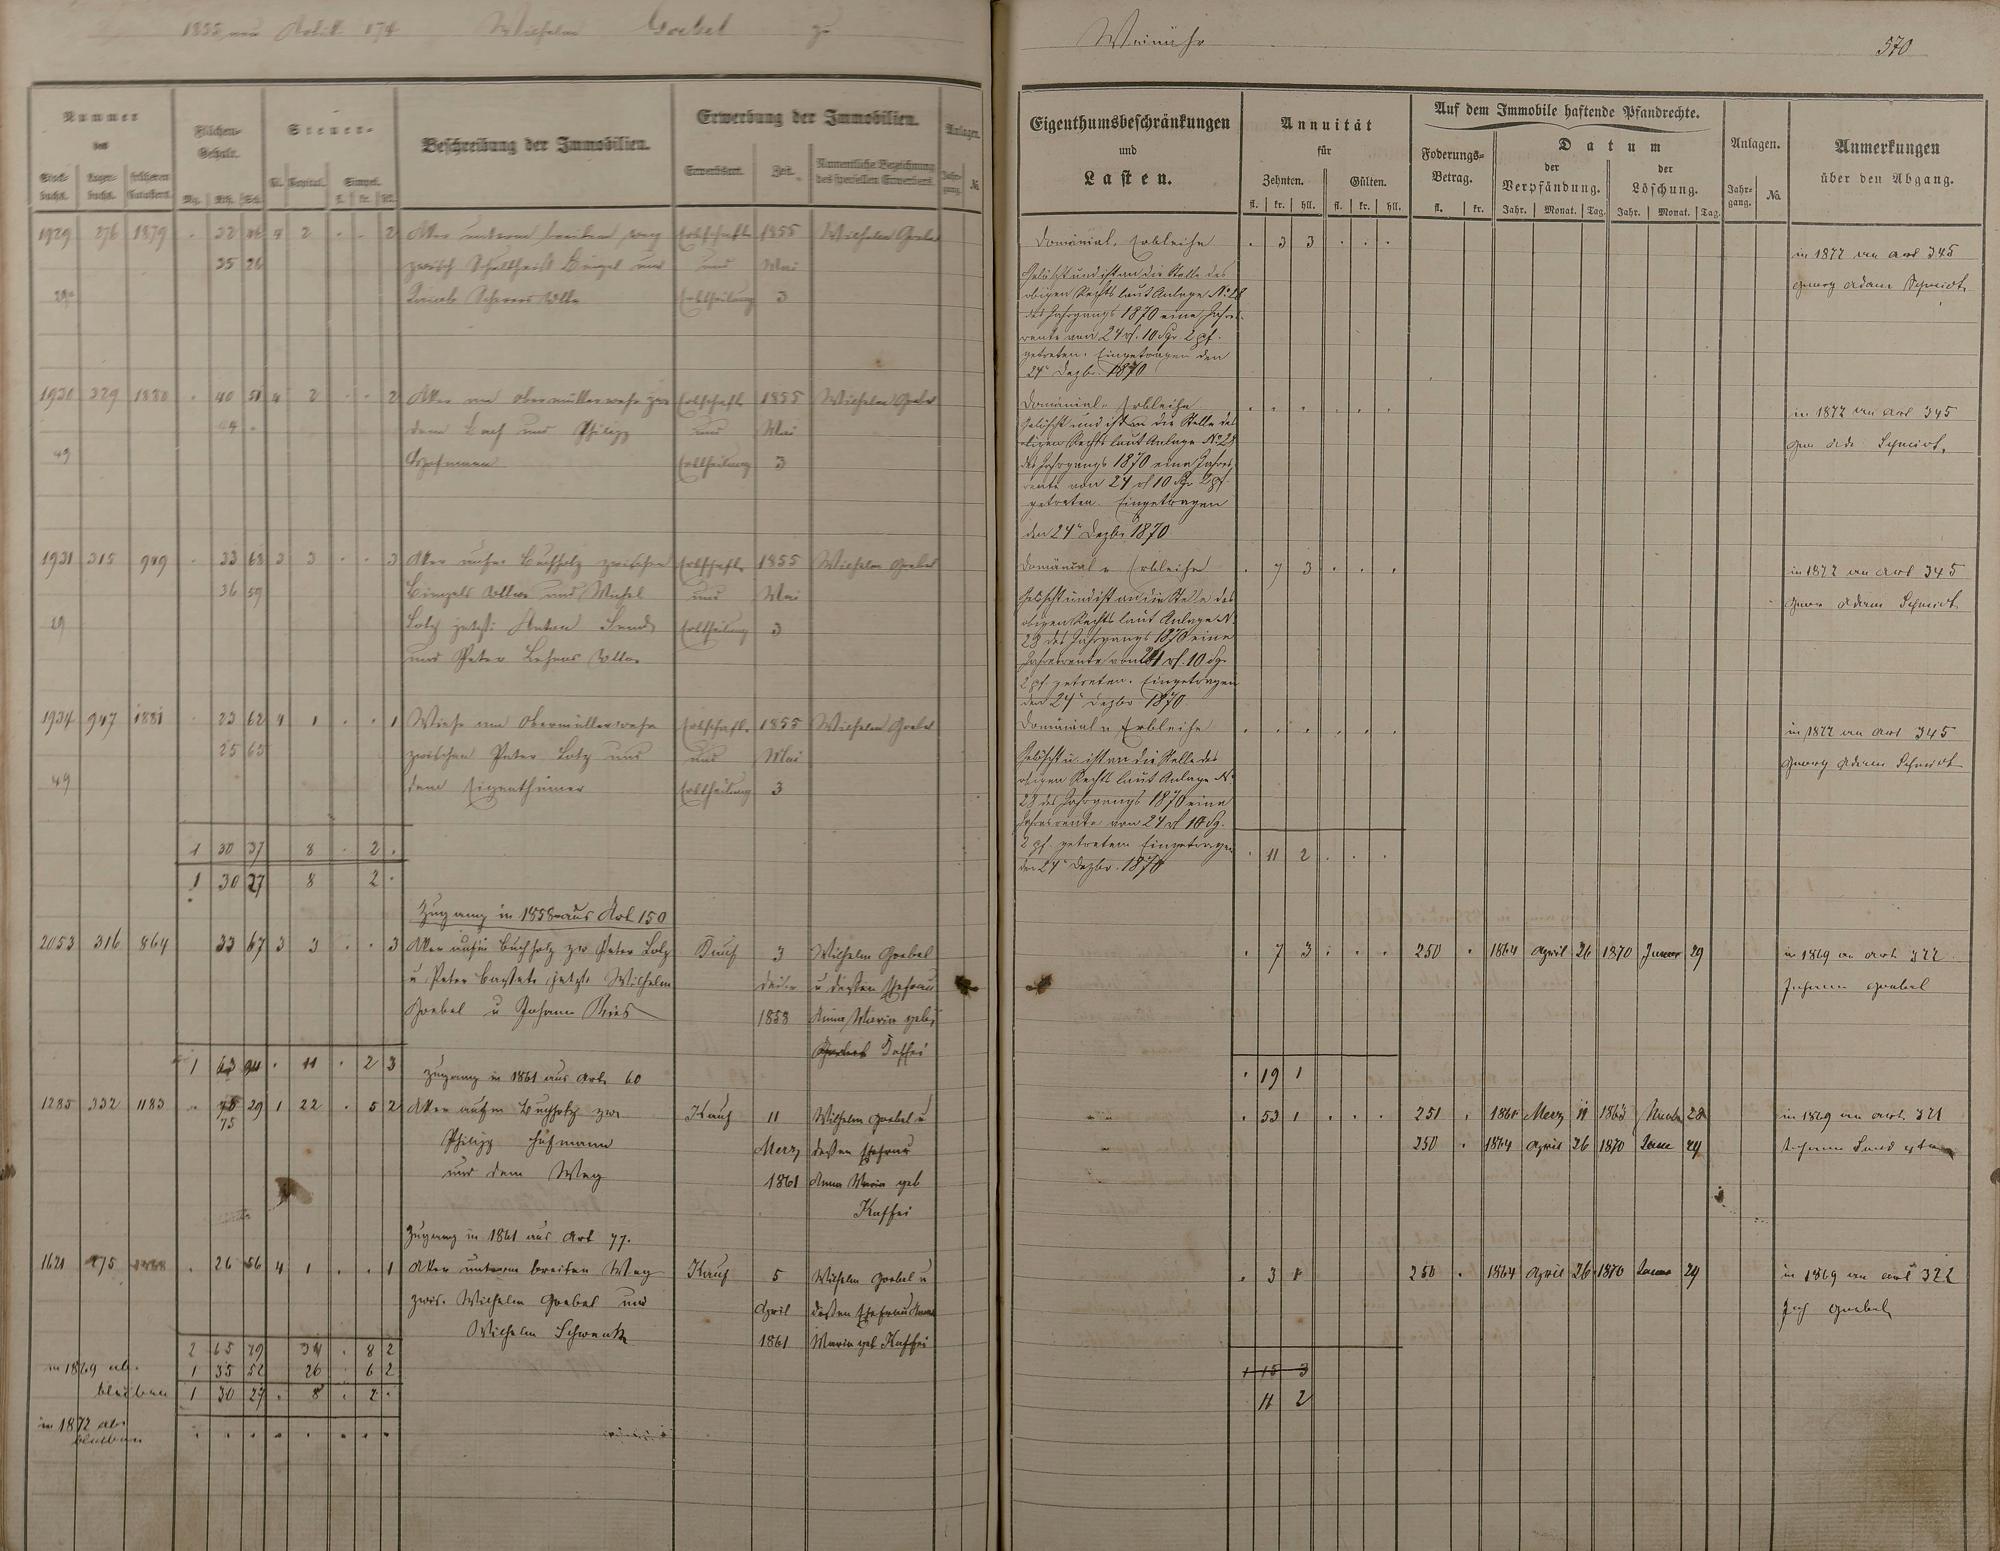 1855 174 Wilhelm Goebel zu
Weinähr 570
Nummer
des
Stock-
buchs.
Lager-
buchs.
früheren
Catasters.
Flächen-
Gehalt.
Mg. Rth. Sch.
Steuer-
Kl. Capital. Simpel.
fl. kr. hll.
Beschreibung der Immobilien.
Erwerbung der Immobilien.
Erwerbsart. Zeit. Namentliche Bezeichnung
des speciellen Erwerbers.
Anlagen.
Jahr-
gang. No.
1929 276 1879 . 32 2 . . 2 Acker unterm breiten Weg Erbschaft 1855 Wilhelm Goebel
35 26 zwisch Schultheiß Bingel und und Mai
Jacob Wttw Erbtheilung 3
1930 329 1880 . 40 51 4 2 . . 2 Acker am Obermüllerwehr zw Erbschaft 1855 Wilhelm Goebel
44 . dem Bach und Philipp und Mai
49 Hofmann Erbtheilung 3
1931 315 949 . 33 68 3 3 . . 3 Acker aufm Buchholz zwischen Erbschaft 1855 Wilhelm Goebel
36 59 Bingels Wttwe und Michel und Mai
29 Lotz jetzt: Anton Erbtheilung 3
und Peter Wttw
1934 947 1881 . 23 62 4 1 . . 1 Wiese am Obermüllerwehr Erbschaft 1855 Wilhelm Goebel
25 65 zwischen Peter Lotz und und Mai
49 dem Eigenthümer Erbtheilung 3
1 30 37 8 . 2 .
1 30 27 8 2 .
Zugang in 1858 aus Art 150
2053 316 864 33 67 3 3 . . 3 Acker aufm Buchholz zw Peter Lotz Kauf 3 Wilhelm Goebel
u Peter jetzt Wilhelm u dessen Ehefrau
Goebel u Johann Ries 1858 Anna Maria geb.
Kaffei
1 63 94 . 11 . 2 3
Zugang in 1861 aus Art. 60
1285 332 1183 29 1 22 . 5 2 Acker aufm Buchholz zw. Kauf 11 Wilhelm Goebel u
75 Philipp Hofmann Merz dessen Ehefrau
und dem Weg 1861 Anna Maria geb
Kaffei
Zugang in 1861 aus Art 77.
1621 275 . 26 56 4 1 . . 1 Acker unterm breiten Weg Kauf 5 Wilhelm Goebel u
zwis. Wilhelm Goebel und April dessen Ehefrau Anna
Wilhelm Schwenk 1861 Maria geb Kaffei
2 65 79 34 . 8 2
in 1869 ab. 1 35 52 26 . 6 2
bleiben 1 30 27 . 8 . 2 .
in 1872 ab.
bleiben
Eigenthumsbeschränkungen
und
Lasten.
Annuität
für
Zehnten. Gülten.
fl. kr. hll. fl. kr. hll.
Auf dem Immobile haftende Pfandrechte.
Foderungs-
Betrag.
fl. kr.
Datum
der
Verpfändung.
der
Löschung.
Jahr. Monat. Tag. Jahr. Monat. Tag.
Anlagen.
Jahr-
gang. No.
Anmerkungen
über den Abgang.
Domänial. Erbleihe . 3 3 . . . in 1872 an Art 345
Georg Adam Schmidt.
Gelöscht und ist an die Stelle des
obigen Rechts laut Anlage No 28
des Jahrgangs 1870 eine Jahres-
rente von 24 rl. 10 Sgr. 2 pf.
getreten. Eingetragen den
24ⁿ Dezbr. 1870
Domänial. Erbleihe . . . . . . in 1872 an Art 345
Schmidt.
Gelöscht und ist an die Stelle des
obigen Rechts laut Anlage No 28
des Jahrgangs 1870 eine Jahres-
rente von 24 rl 10 Sgr 2 pf
getreten. Eingetragen
den 24ⁿ Dezbr 1870
Domänial. Erbleihe . 7 3 . . . in 1872 an Art 345
Georg Adam Schmidt
Gelöscht und ist an die Stelle des
obigen Rechts laut Anlage No
28 des Jahrgangs 1870 eine
Jahresrente von 24 rl. 10 Sgr.
2 pf. getreten. Eingetragen
den 24ⁿ Dezbr 1870.
Domänial. Erbleihe . . . . . . in 1872 an Art 345
Georg Adam Schmidt
Gelöscht u. ist an die Stelle des
obigen Rechts laut Anlage No
28 des Jahrgangs 1870 eine
Jahresrente von 24 rl 10 Sg.
2 pf. getreten Eingetragen
den 24ⁿ Dezbr. 1870
. 11 2 . . .
. 7 3 . . . 250 . 1864 April 26 1870 Januar 29 in 1869 an Art. 322
Johann Goebel
. 19 1
. 53 1 . . . 251 . 1861 Merz 11 1863 28 in 1869 an Art. 321
250 . 1864 April 26 1870 Janr 29 Johann
. 3 1 250 . 1864 April 26 1870 Januar 29 in 1869 an Art 322
Joh Goebel
1 15 3
11 2